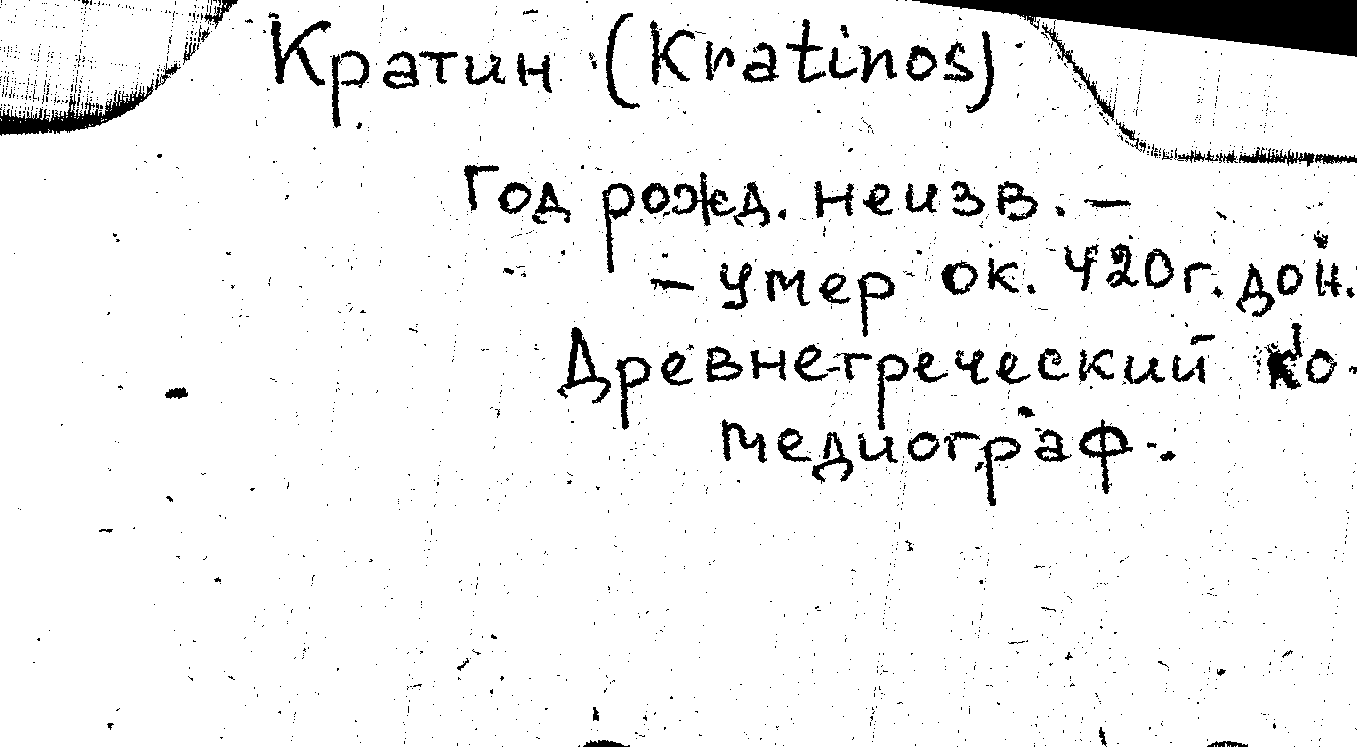 Кратин (Kratinos)
Год рожд. неизв. –
– умер ок. 420 г. до н.
Древнегреческий ко-
медиограф.